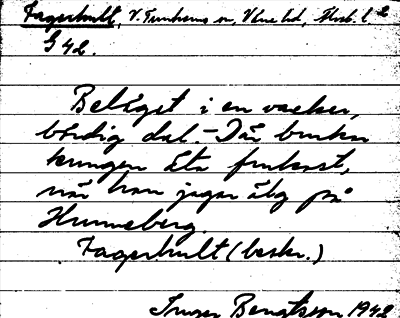 Fagerhult, V. Tunhems sn, Väne hd, Älvsb. l
G 42.
Beläget i en vacker,
bördig dal. – Där brukar
kungen äta frukost,
när han jagar älg på
Hunneberg.
Fagerhult (beskr.)
Ingvar Bengtsson 1942